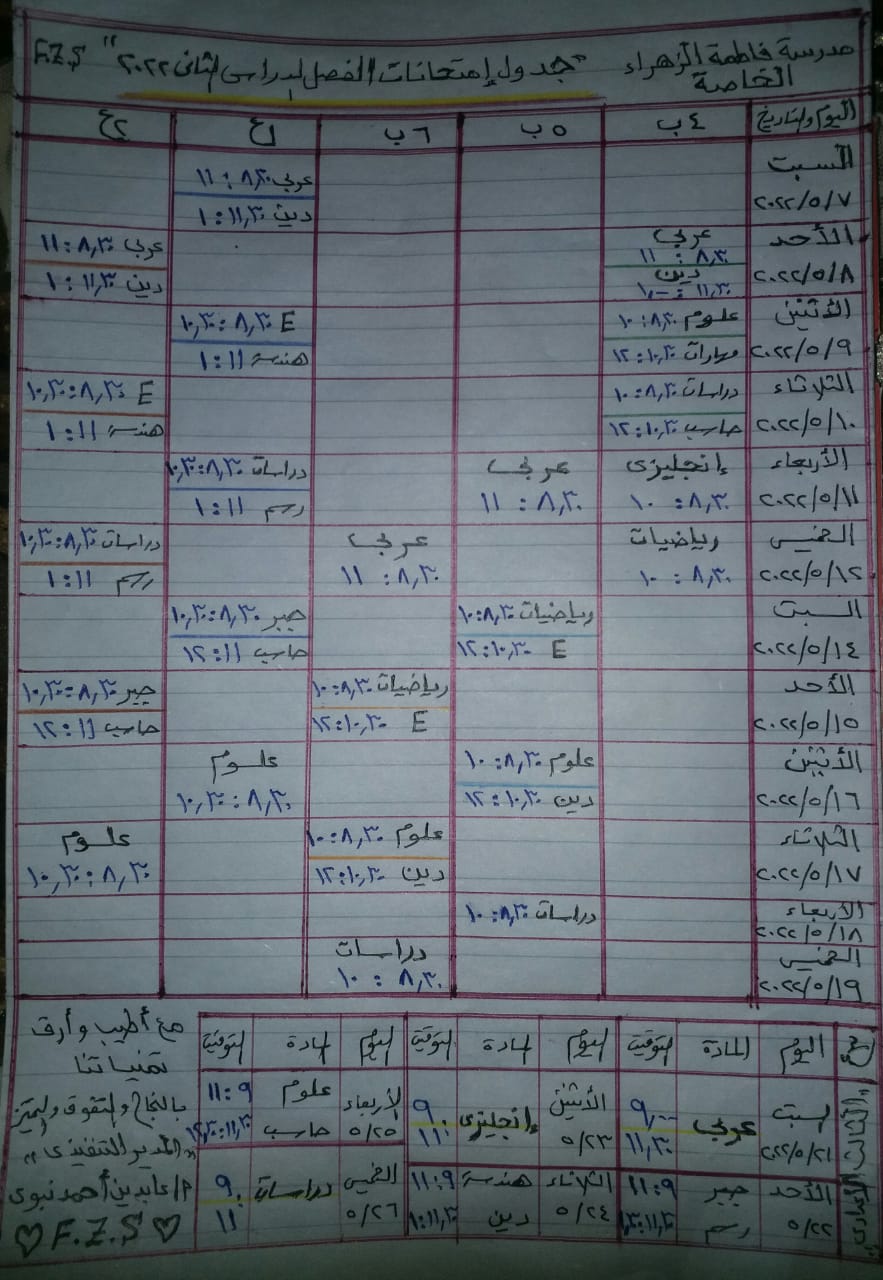 مدرسة فاطمة الزهراء الخاصة "جدول إمتحانات الفصل الدراسى الثانى ٢٠٢٢" F.Z.S
اليوم والتاريخ ٤ ب ٥ ب ٦ ب ١ع ٢ع
السبت ٢٠٢٢/٥/٧
عربى ٨,٣٠ : ١١
دين ١١,٣٠ : ١
الأحد ٢٠٢٢/٥/٨
عربى ٨,٣٠ : ١١
دين ١١,٣٠ : ١,٠٠
عربى ٨,٣٠ : ١١
دين ١١,٣٠ : ١
الأثنين ٢٠٢٢/٥/٩
علوم ٨,٣٠ : ١٠
مهارات ١٠,٣٠ : ١٢
E ٨,٣٠ : ١٠,٣٠
هندسة ١١ : ١
الثلاثاء ٢٠٢٢/٥/١٠
دراسات ٨,٣٠ : ١٠
حاسب ١٠,٣٠ : ١٢
E ٨,٣٠ : ١٠,٣٠
هندسة ١١ : ١
الأربعاء ٢٠٢٢/٥/١١
إنجليزى ٨,٣٠ : ١٠
عربى ٨,٣٠ : ١١
دراسات ٨,٣٠ : ١٠,٣٠
رسم ١١ : ١
الخميس ٢٠٢٢/٥/١٢
رياضيات ٨,٣٠ : ١٠
عربى ٨,٣٠ : ١١
دراسات ٨,٣٠ : ١٠,٣٠
رسم ١١ : ١
السبت ٢٠٢٢/٥/١٤
رياضيات ٨,٣٠ : ١٠
E ١٠,٣٠ : ١٢
جبر ٨,٣٠ : ١٠,٣٠
حاسب ١١ : ١٢
الأحد ٢٠٢٢/٥/١٥
رياضيات ٨,٣٠ : ١٠
E ١٠,٣٠ : ١٢
جبر ٨,٣٠ : ١٠,٣٠
حاسب ١١ : ١٢
الأثنين ٢٠٢٢/٥/١٦
علوم ٨,٣٠ : ١٠
دين ١٠,٣٠ : ١٢
علوم ٨,٣٠ : ١٠,٣٠
الثلاثاء ٢٠٢٢/٥/١٧
علوم ٨,٣٠ : ١٠
دين ١٠,٣٠ : ١٢
علوم ٨,٣٠ : ١٠,٣٠
الأربعاء ٢٠٢٢/٥/١٨
دراسات ٨,٣٠ : ١٠
الخميس ٢٠٢٢/٥/١٩
دراسات ٨,٣٠ : ١٠
"الثالث الإعدادى"
اليوم المادة التوقيت اليوم المادة التوقيت اليوم المادة التوقيت
السبت ٢٠٢٢/٥/٢١ عربى ٩,٠٠ ١١,٣٠
الأثنين ٥/٢٣ إنجليزى ٩,٠ ١١,٠
الأربعاء ٥/٢٥ علوم ٩ : ١١
حاسب ١١,٣٠ : ١٢,٣٠
الأحد ٥/٢٢ جبر ٩ : ١١
رسم ١١,٣٠ : ١,٣٠
الثلاثاء ٥/٢٤ هندسة ٩ : ١١
دين ١١,٣٠ : ١
الخميس ٥/٢٦ دراسات ٩,٠ ١١
مع أطيب وأرق
تمنياتنا
بالنجاح والتفوق والتميز
"المدير التنفيذى"
م/عابدين أحمد نبوى
♡ F.Z.S ♡